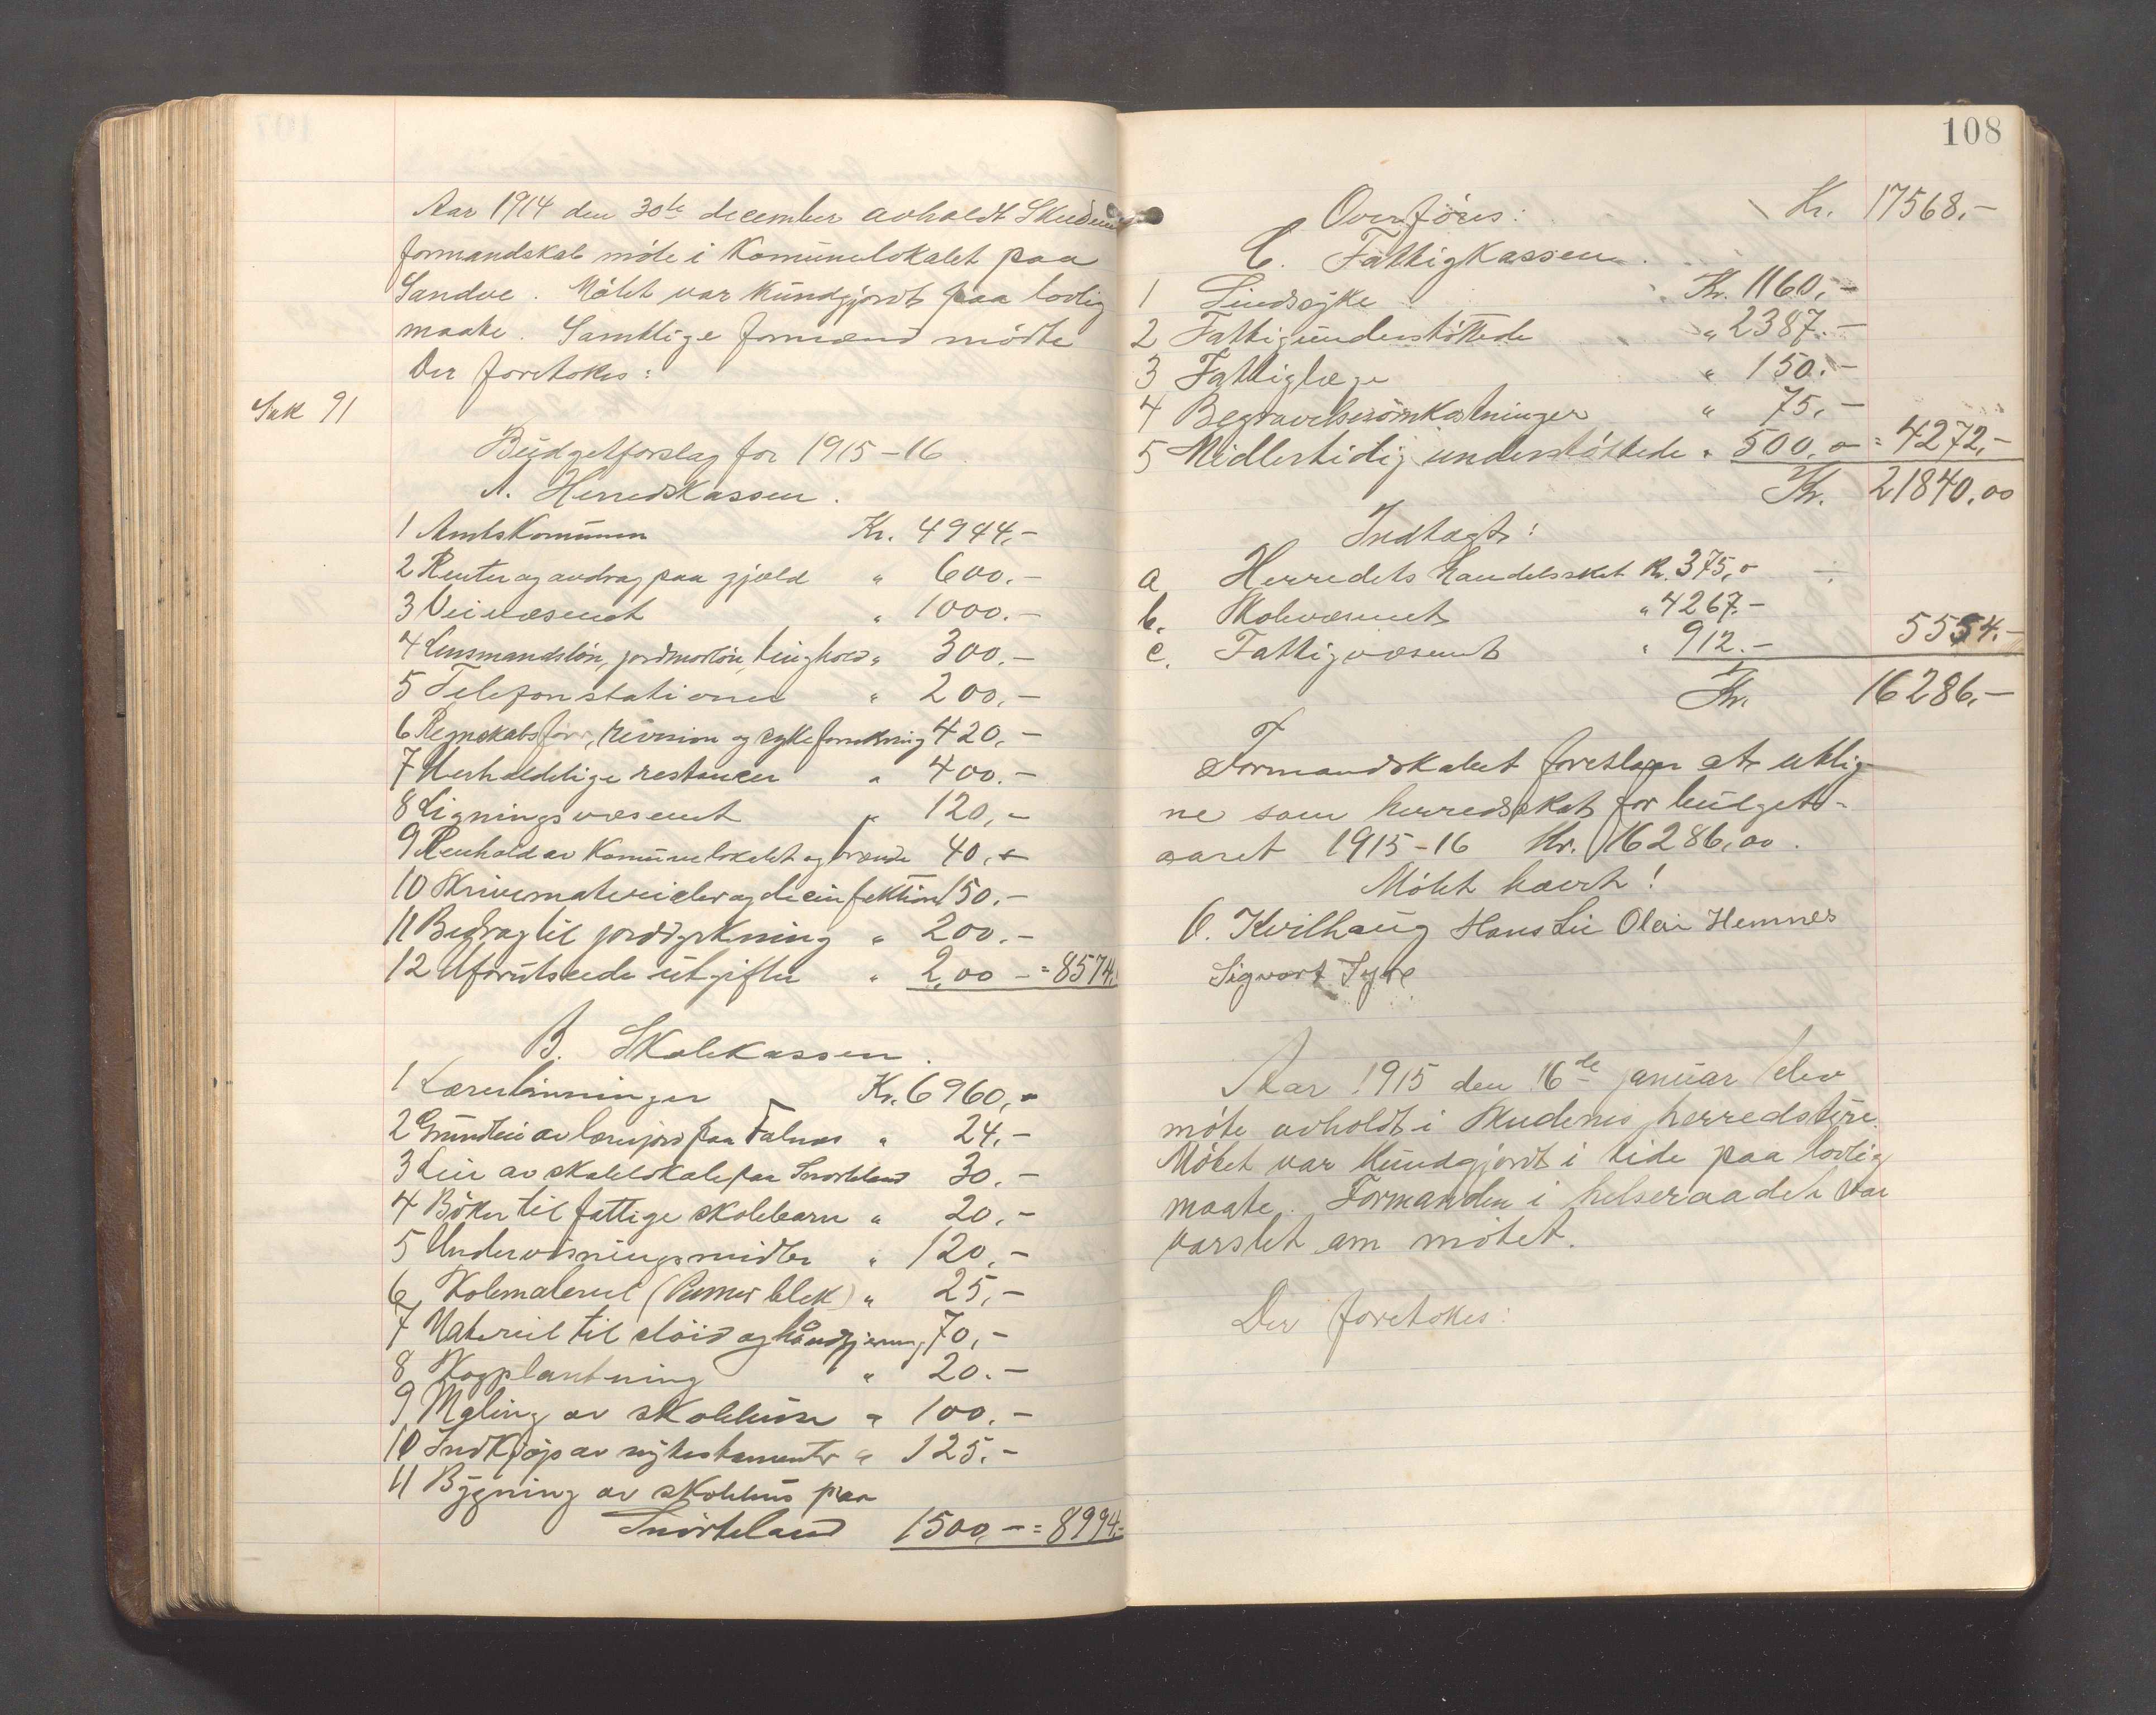 Aar 1914 den 30te december avholdt Skudenes
formandskab møte i Komunelokalet paa
Sandve. Møtet var kundgjordt paa lovlig
maate. Samtlige formænd mødte
Der foretokes:
Sak 91
Budgetforslag for 1915-16.
A. Herredskassen.
1 Amtskomunen Kr. 4944,-
2 Renter og avdrag paa gjæld " 600.-
3 Veivæsenet " 1000.-
4 Lensmandsløn, jordmorløn, tinghold " 300.-
5 Telefonstationer " 200,-
6 Regnskabsför, revision og sykeforsikring 420,-
7 Uerholdelige restancer " 400.-
8 Ligningsvæsenet " 120,-
9 Renhold av Komunelokalet og brænde 40,-
10 Skrivematerialer og decinfektion 150.-
11 Bidrag til jorddyrkning " 200.-
12 Uforutseede utgifter " 2,00 - = 8574,
B. Skolekassen.
1 Lærerlönninger Kr. 6960,-
2 Grundleie av lærerjord paa Falnes " 24,-
3 Leie av skolelokale paa Snörteland 30.-
4 Böker til fattige skolebarn " 20.-
5 Undervisningsmidler " 120,-
6 Skolemateriel (Penner blek) " 25,-
7 Materiel til slöid og håndgjerning 70,-
8 Skogplantning " 20.-
9 Maling av skolehuse " 100.-
10 Indkjøp av nytestamenter " 125.-
11 Bygning av skolehus paa
Snörteland 1500,- = 8994,-
108
Overföres: Kr. 17568,-
C. Fattigkassen.
1 Sindssyke Kr. 1160,-
2 Fattigunderstöttede " 2387.-
3 Fattiglæge " 150.-
4 Begravelsesomkostninger " 75,-
5 Midlertidig understøttede " 500,- = 4272,-
Kr. 21840,00
Indtægt:
a Herredets handelsskat Kr. 375,- ÷
b. Skolevæsenet " 4267.-
c. Fattigvæsenet " 912.- 5554.-
Kr. 16286,-
Formandskabet foreslaar at utlig
ne som herredsskat for budgets-
aaret 1915-16 Kr. 16286,00.
Møtet hævet!
O. Kvilhaug Hans Lie Olai Hemnes
Sigvart Syre
Aar 1915 den 16de januar blev
møte avholdt i Skudenes herredstyre.
Møtet var kundgjordt i tide paa lovlig
maate. Formanden i helseraadet var
varslet om møtet.
Der foretokes: